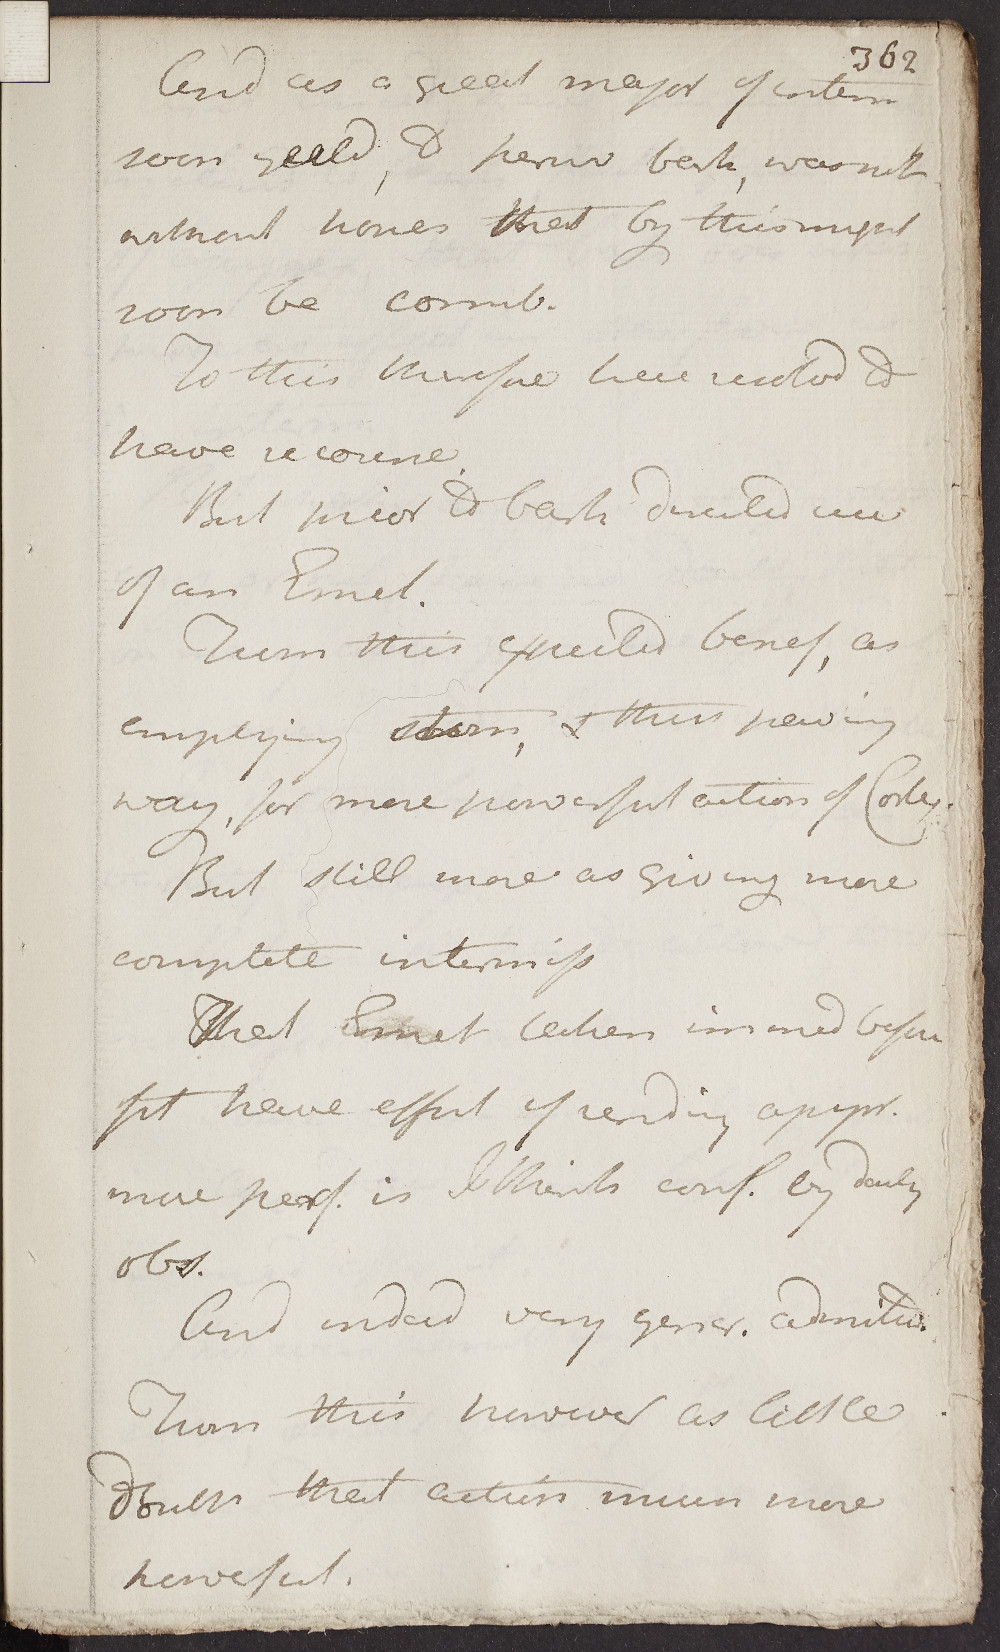 362
And as a great major of interm
soon yeeld, to peruv bark, was not
without hopes that by this might
soon be comb.
To this therefore here resolvd to
have recourse.
But prior to bark directed use
of an Emet.
From this expected benef, as
emptying stom, & thus paving
way, for more powerful action of Cortex.
But still more as giving more
complete intermiss
That Emet taken immed before
fit have effect of rending apyr.
more perf. is I think conf. by daily
obs.
And indeed very gener. admitted.
From this however as little
doubt that action much more
powerful.